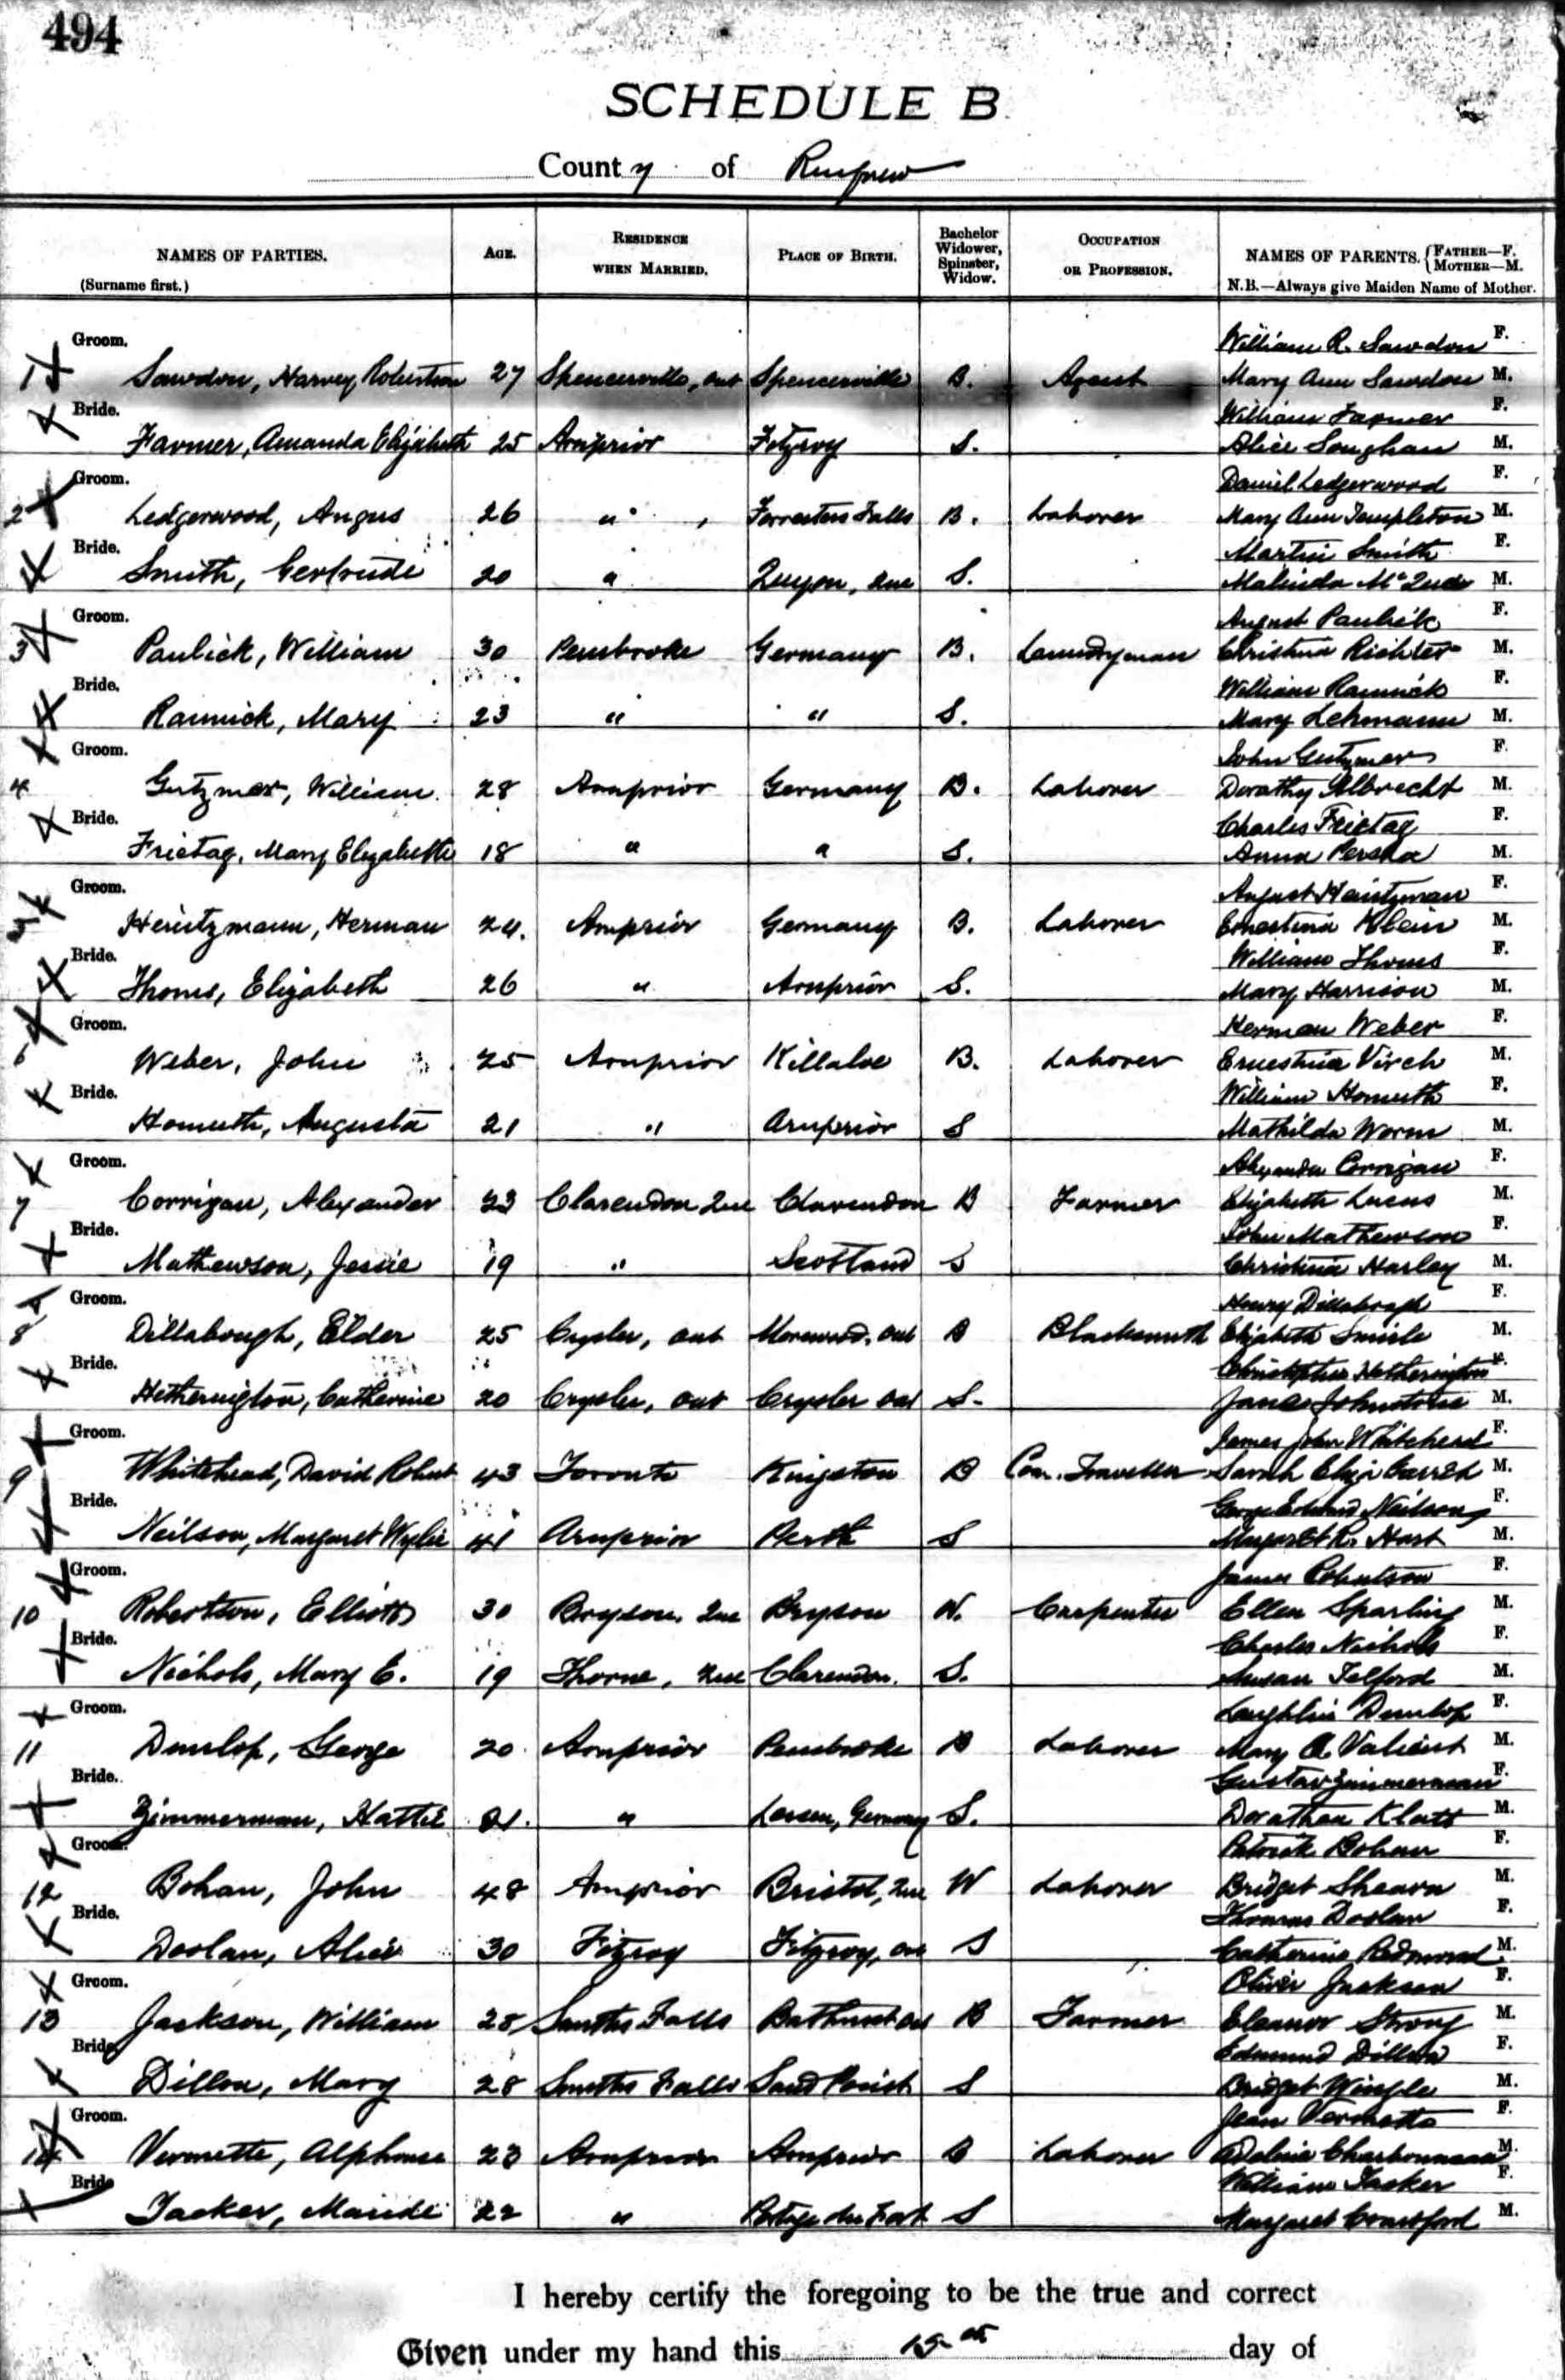 494
SCHEDULE B
County of Renfrew
NAMES OF PARTIES. (Surname first.) AGE. RESIDENCE WHEN MARRIED. PLACE OF BIRTH. Bachelor Widower, Spinster, Widow. OCCUPATION OR PROFESSION. NAMES OF PARENTS. {FATHER—F. MOTHER—M. N.B.—Always give Maiden Name of Mother.
Groom. William R. Sawdon F.
1 Sawdon, Harvey Robertson 27 Spencerville, Ont Spencerville B. Agent Mary Ann Sawdon M.
Bride. William Farmer F.
Farmer, Amanda Elizabeth 25 Arnprior Fitzroy S. Alice M.
Groom. Daniel Ledgerwood F.
2 Ledgerwood, Angus 26 " Forresters Falls B. Laborer Mary Ann Templeton M.
Bride. Martin Smith F.
Smith, Gertrude 20 " Quyon, Que S. Malinda M.
Groom. August Paulick F.
3 Paulick, William 30 Pembroke Germany B. Laundryman Christina Richter M.
Bride. William Rannick F.
Rannick, Mary 23 " " S. Mary Lehmann M.
Groom. John Gutzmer F.
4 Gutzmer, William 28 Arnprior Germany B. Laborer Dorathy Albrecht M.
Bride. Charles Frietag F.
Frietag, Mary Elizabeth 18 " " S. Anna M.
Groom. August Heintzman F.
5 Heintzmann, Herman 24. Arnprior Germany B. Laborer Ernestina Klein M.
Bride. William Thoms F.
Thoms, Elizabeth 26 " Arnprior S. Mary Harrison M.
Groom. Herman Weber F.
6 Weber, John 25 Arnprior Killaloe B. Laborer Ernestina Virch M.
Bride. William Homuth F.
Homuth, Augusta 21 " Arnprior S Mathilda Worm M.
Groom. Alexander Corrigan F.
7 Corrigan, Alexander 23 Clarendon Que Clarendon B Farmer Elizabeth Lucas M.
Bride. John Mathewson F.
Mathewson, Jessie 19 " Scotland S Christina Harley M.
Groom. Henry Dillabough F.
8 Dillabough, Elder 25 Crysler, Ont Morewood, Ont B Blacksmith Elizabeth M.
Bride. Christopher Hetherington F.
Hetherington, Catherine 20 Crysler, Ont Crysler Ont S. Jane Johnstone M.
Groom. James John Whitehead F.
9 Whitehead, David Robert 43 Toronto Kingston B Com. Traveller Sarah Eliza Garrett M.
Bride. George Edward Neilson F.
Neilson, Margaret Wylie 41 Arnprior Perth S Margaret R. Hart M.
Groom. James Robertson F.
10 Robertson, Elliott 30 Bryson, Que Bryson W. Carpenter Ellen Sparling M.
Bride. Charles Nichols F.
Nichols, Mary E. 19 Thorne, Que Clarendon. S. Susan Telford M.
Groom. Laughlin Dunlop F.
11 Dunlop, George 20 Arnprior Pembroke B Laborer Mary A. Valient M.
Bride. Gustav Zimmerman F.
Zimmerman, Hattie 21. " Germany S. Dorathea Klatt M.
Groom. Patrick Bohan F.
12 Bohan, John 48 Arnprior Bristol, Que W Laborer Bridget M.
Bride. Thomas Doolan F.
Doolan, Alice 30 Fitzroy Fitzroy, Ont S Catherine Redmond M.
Groom. Oliver Jackson F.
13 Jackson, William 28 Smiths Falls Bathurst Ont B Farmer Eleanor Strong M.
Bride. Edmund Dillon F.
Dillon, Mary 28 Smiths Falls Sand Point S Bridget Wingle M.
Groom. Jean Vermette F.
14 Vermette, Alphonse 23 Arnprior Arnprior B Laborer Charbonneau M.
Bride William Tacker F.
Tacker, Maude 22 " Portage du Fort S Margaret Crawford M.
I hereby certify the foregoing to be the true and correct
Given under my hand this 15th day of